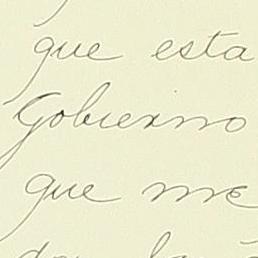 que esta
Gobierno
que me